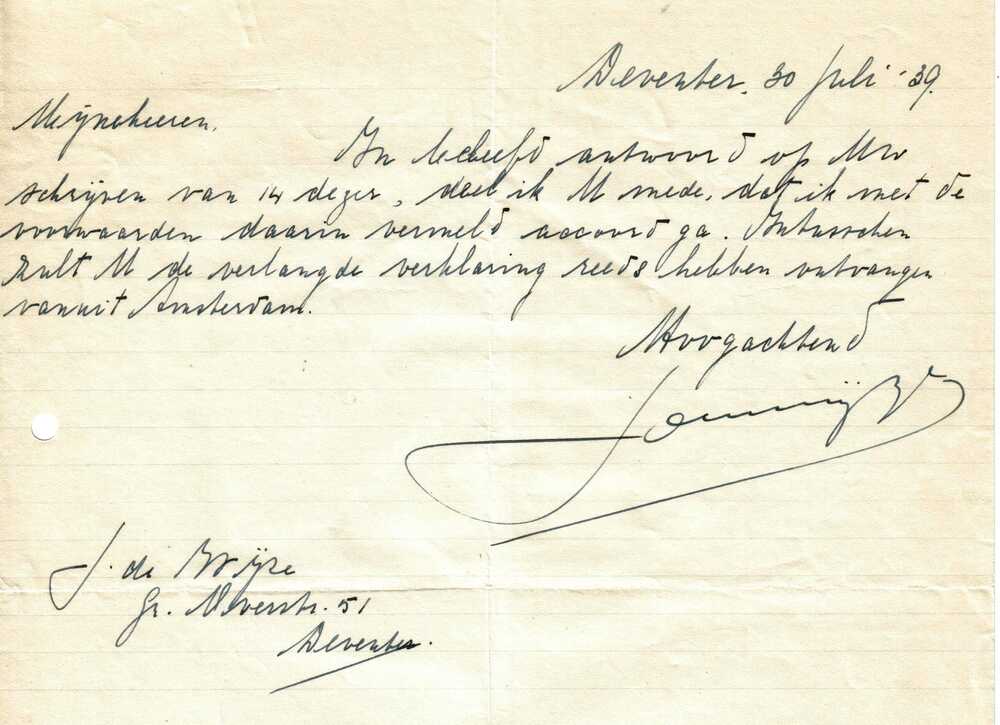 Deventer, 30 Juli '39.
Mijneheeren,
In beleefd antwoord op Uw
schrijven van 14 dezer, deel ik U mede, dat ik met de
voorwaarden daarin vermeld accoord ga. Intusschen
zult U de verlangde verklaring reeds hebben ontvangen
vanuit Amsterdam.
Hoogachtend
J. de Wijze
Gr. Overstr. 51
Deventer.